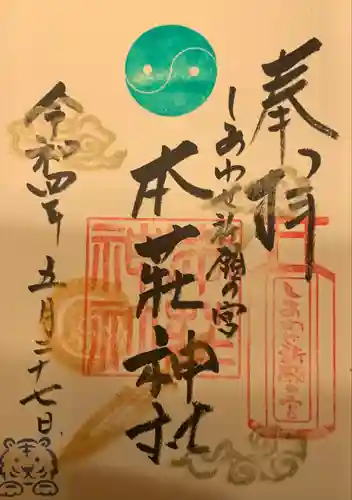 奉拝
しあわせ祈願の宮
本荘神社
令和四年
五月二十七日
しあわせ祈願之宮